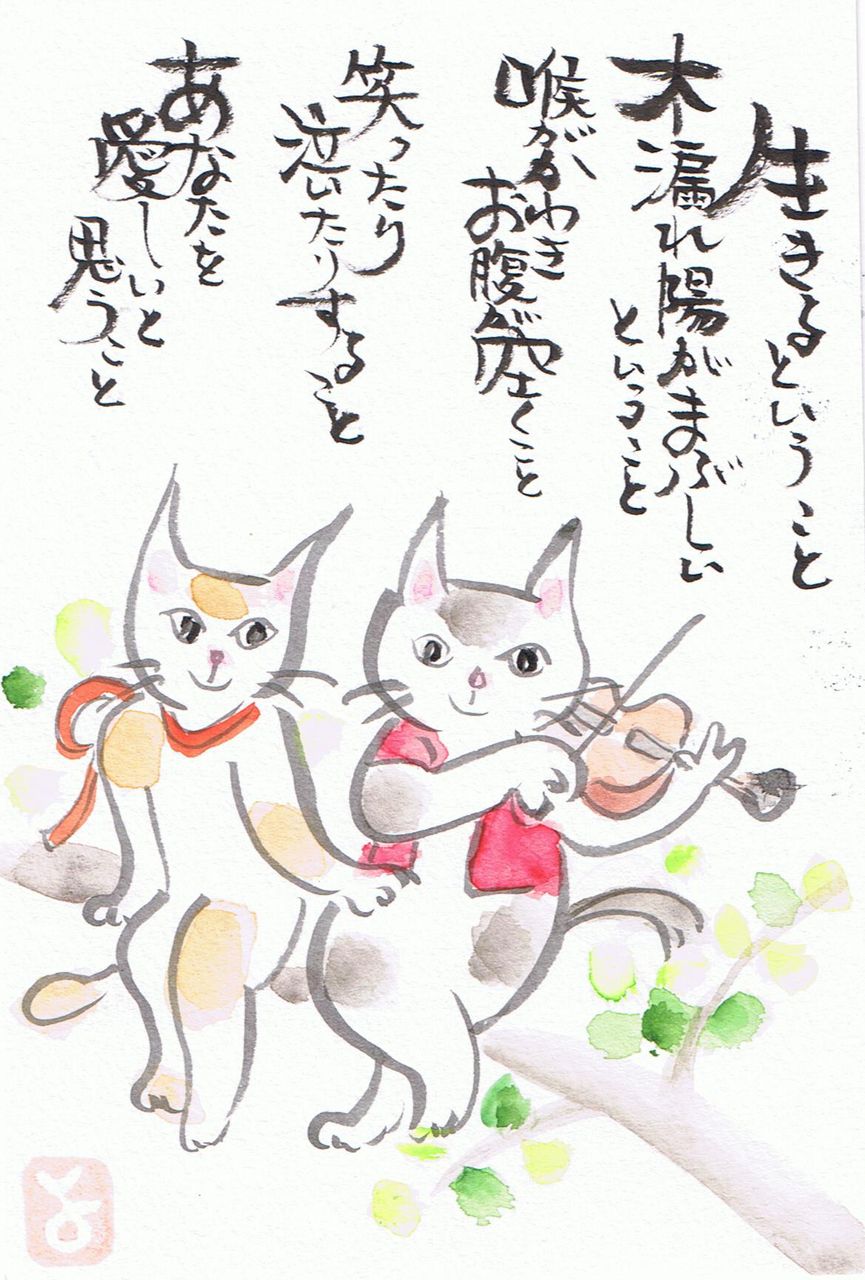 生きるということ
木漏れ陽がまぶしい
ということ
喉がかわき
お腹が空くこと
笑ったり
泣いたりすること
あなたを
愛しいと
思うこと
よ